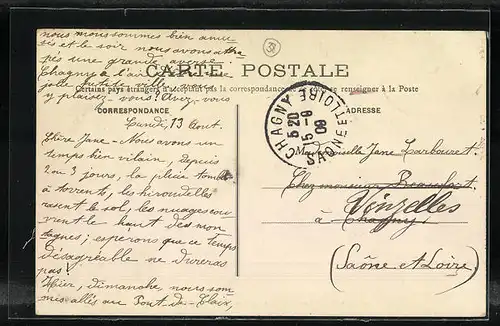 nous nous sommes bien amu-
sés et le soir nous avons attra
pés une grande averse.
Chagny a l'air d'être une
jolie petite ville. Vous
y plaisez-vous? Avez-vous
CARTE POSTALE
Certains pays étrangers n'acceptant pas la correspondance se renseigner à la Poste
CORRESPONDANCE
ADRESSE
38
CHAGNY
5 20
15 -8
09
SAÔNE ET LOIRE
Lundi, 13 Août.
Chère Jane - Nous avons un
temps bien vilain, depuis
2 ou 3 jours, la pluie tombe
à torrents, les hirondelles
rasent le sol, les nuages cou
vrent le haut des mon
tagnes; esperons que ce temps
désagréable ne durera
pas!
Hier, dimanche nous som
mes allés au Pont-de-Claix,
Mademoiselle Jane Larbouret.
Chez monsieur Beaufort
Vinzelles
à Chagny
(Saône et Loire)